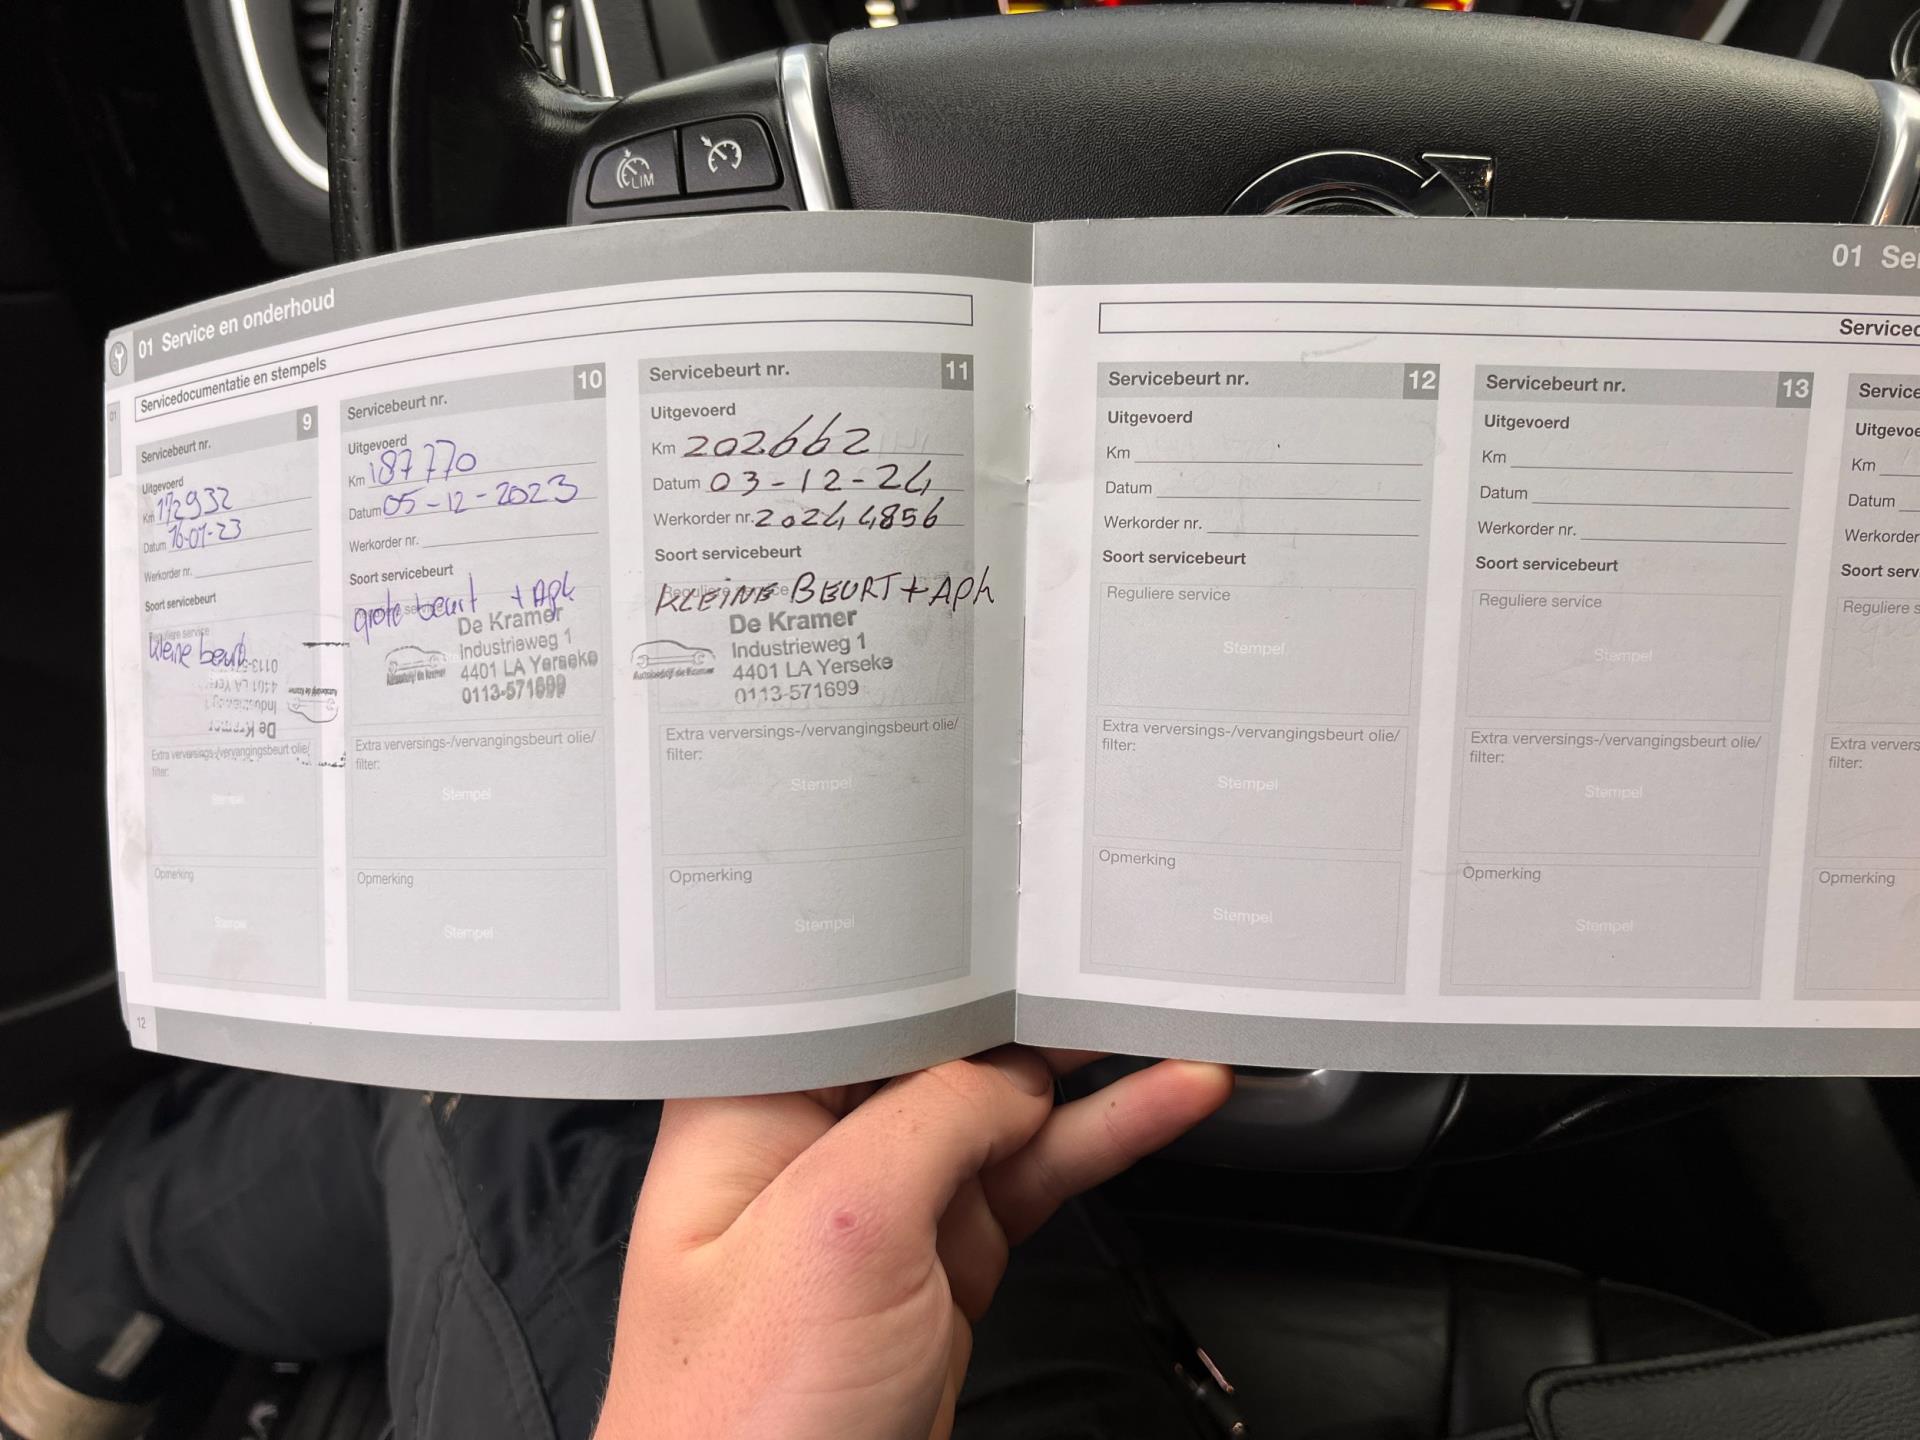 LIM
01 Service en onderhoud
Servicedocumentatie en stempels
Servicebeurt nr. 9
Uitgevoerd
Km 172932
Datum 16-01-23
Werkorder nr.
Soort servicebeurt
Reguliere service
kleine beurt
De Kramer
Industrieweg 1
4401 LA Yerseke
0113-5
Autobedrijf de Kramer
Extra verversings-/vervangingsbeurt olie/
filter:
Stempel
Opmerking
Stempel
12
Servicebeurt nr. 10
Uitgevoerd
Km 187770
Datum 05-12-2023
Werkorder nr.
Soort servicebeurt
grote beurt + Apk
De Kramer
Industrieweg 1
4401 LA Yerseke
0113-571699
Autobedrijf de Kramer
Extra verversings-/vervangingsbeurt olie/
filter:
Stempel
Opmerking
Stempel
Servicebeurt nr. 11
Uitgevoerd
Km 202662
Datum 03-12-24
Werkorder nr. 20244856
Soort servicebeurt
Reguliere service
KLEINE BEURT + APk
De Kramer
Industrieweg 1
4401 LA Yerseke
0113-571699
Autobedrijf de Kramer
Extra verversings-/vervangingsbeurt olie/
filter:
Stempel
Opmerking
Stempel
01 Se
Serviced
Servicebeurt nr. 12
Uitgevoerd
Km
Datum
Werkorder nr.
Soort servicebeurt
Reguliere service
Stempel
Extra verversings-/vervangingsbeurt olie/
filter:
Stempel
Opmerking
Stempel
Servicebeurt nr. 13
Uitgevoerd
Km
Datum
Werkorder nr.
Soort servicebeurt
Reguliere service
Stempel
Extra verversings-/vervangingsbeurt olie/
filter:
Stempel
Opmerking
Stempel
Service
Uitgevoe
Km
Datum
Werkorder
Soort serv
Reguliere s
Extra ververs
filter:
Opmerking